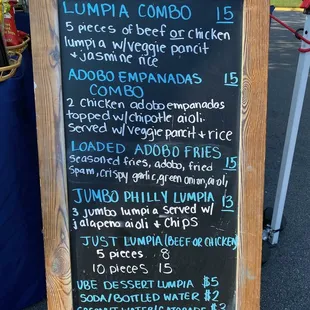 LUMPIA COMBO 15
5 pieces of beef or chicken
lumpia w/veggie pancit
+ jasmine rice
ADOBO EMPANADAS 15
COMBO
2 chicken adobo empanadas
topped w/chipotle aioli.
served w/veggie pancit + rice
LOADED ADOBO FRIES
seasoned fries, adobo, fried 15
Spam, crispy garlic, green onion, aioli
JUMBO PHILLY LUMPIA 13
3 jumbo lumpia served w/
jalapeno aioli + chips
JUST LUMPIA (BEEF OR CHICKEN)
5 pieces 8
10 pieces 15
UBE DESSERT LUMPIA $5
SODA/BOTTLED WATER $2
COCONUT WATER/GATORADE $3